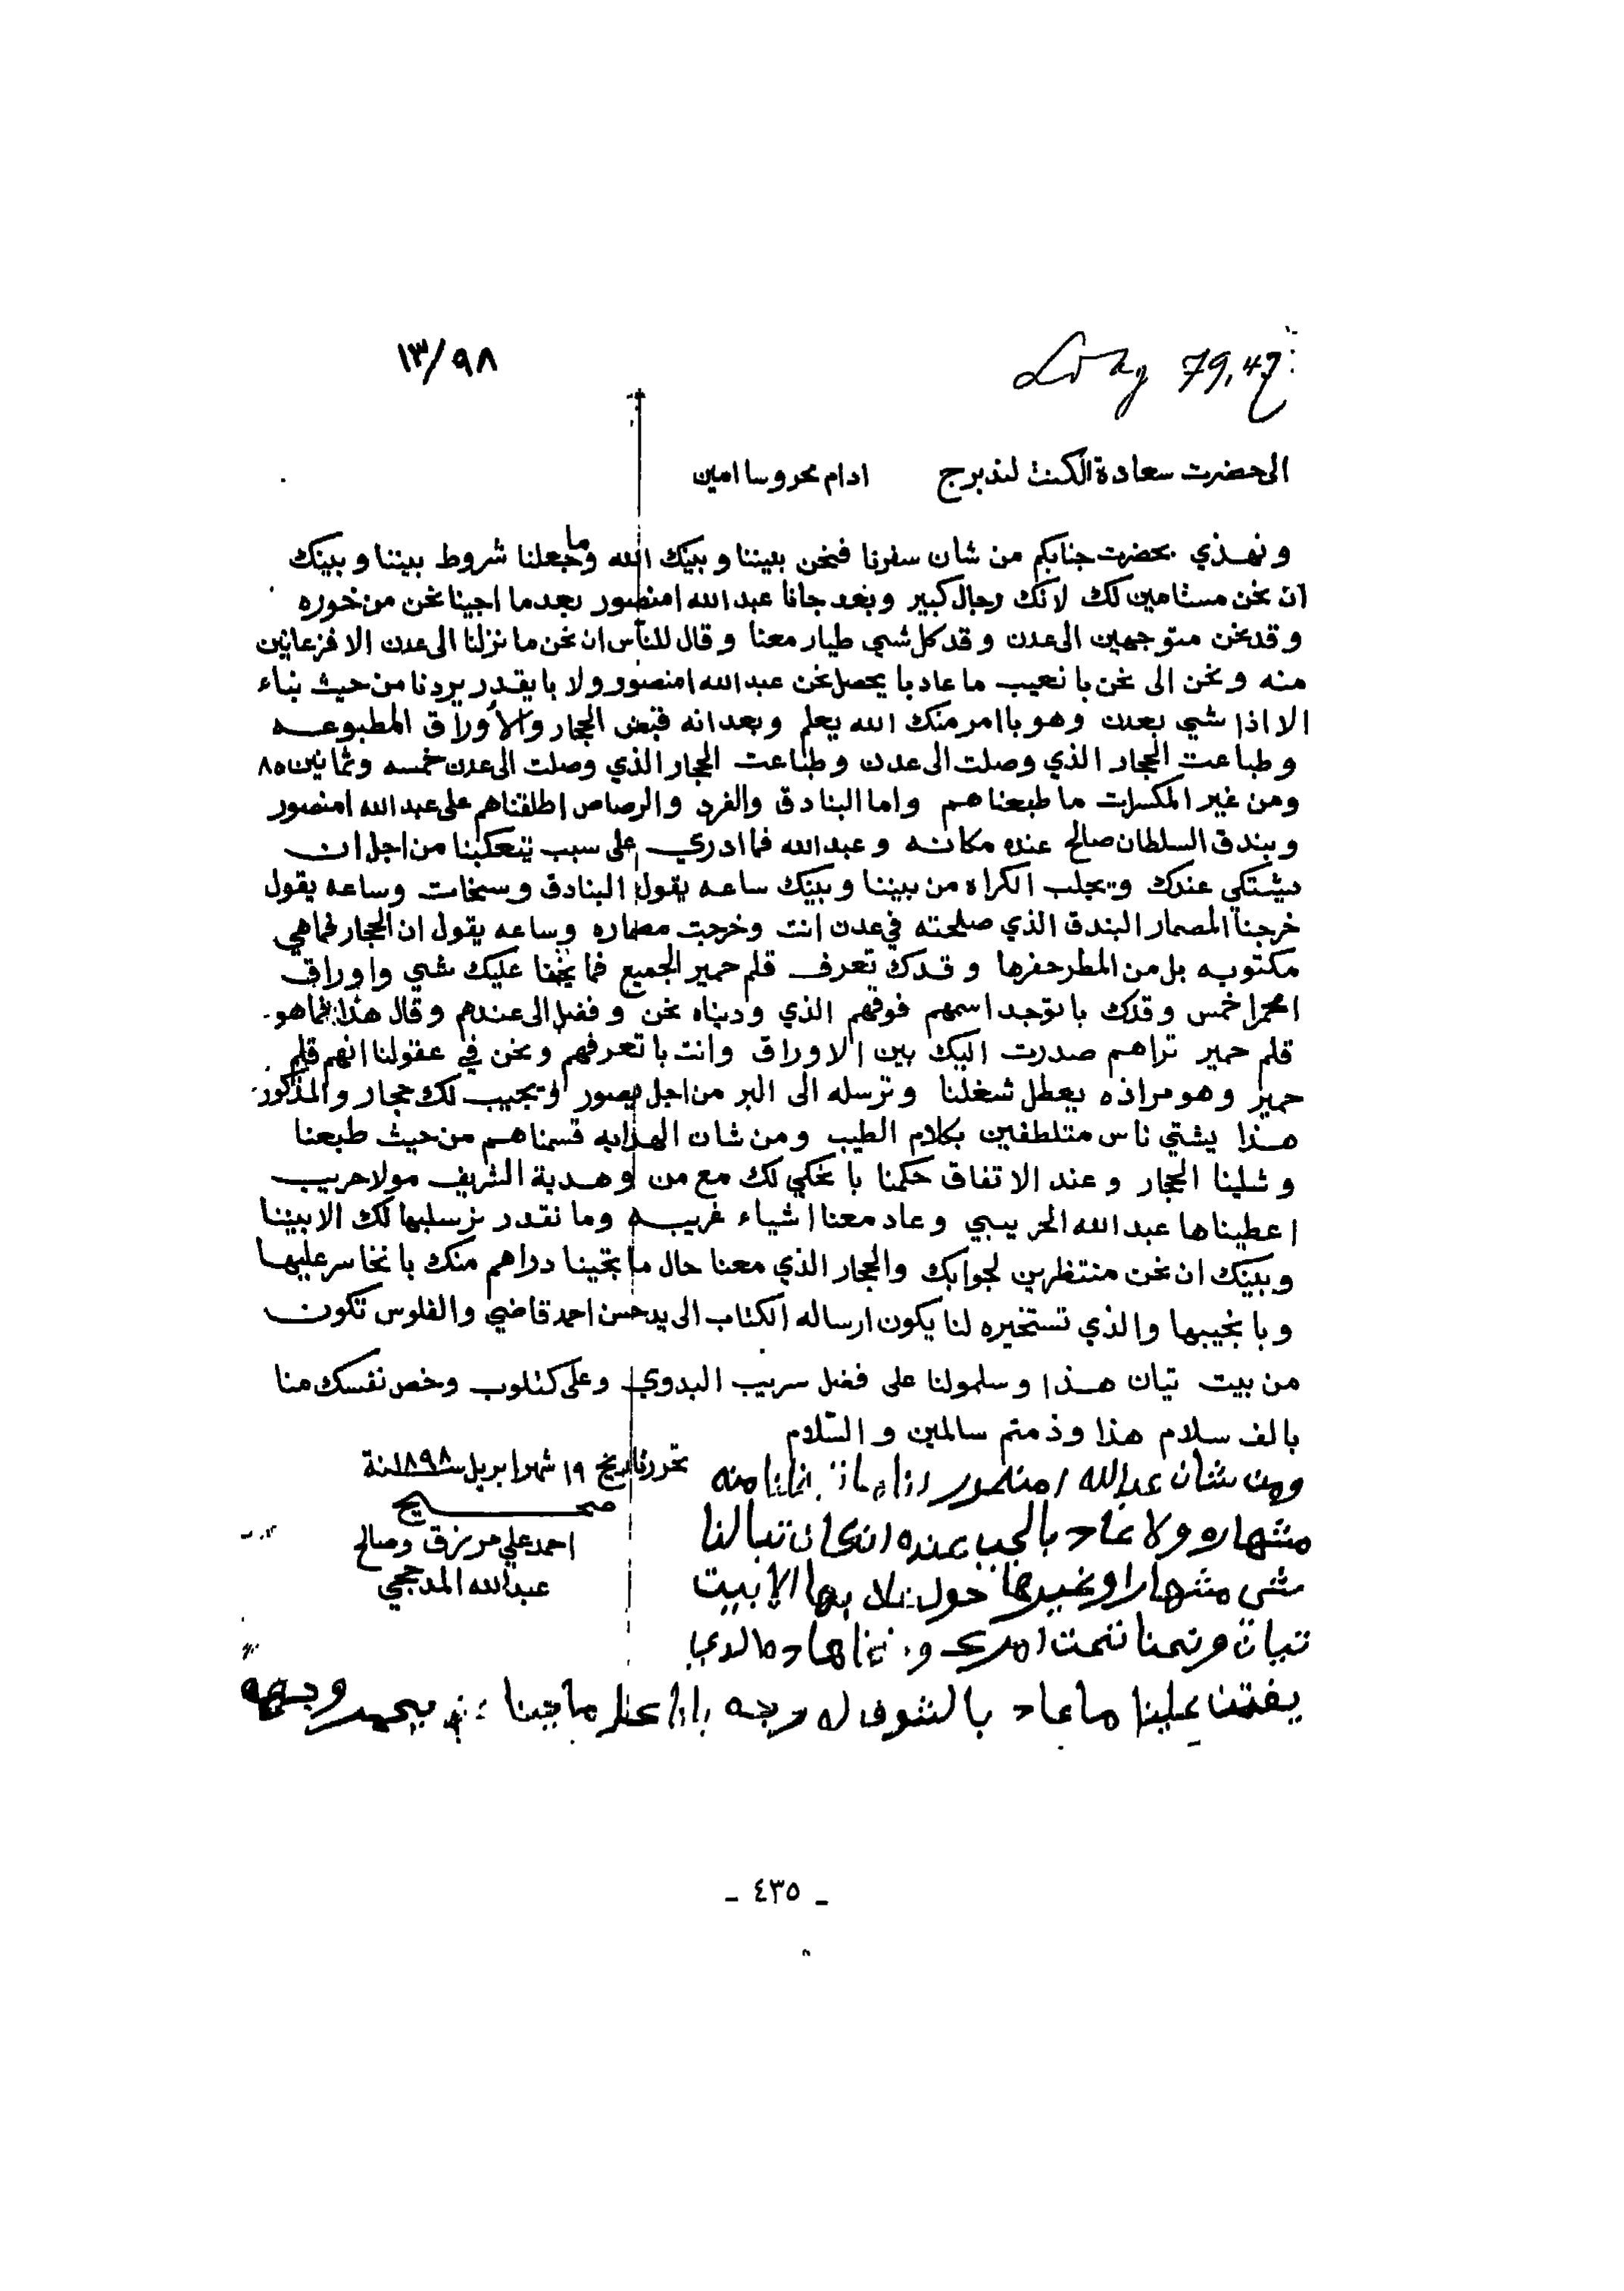 ١٣/٩٨
79,47
الى حضرت سعادة الكنت لندبرج ادام محروسا امين
ونهذي بحضرت جنابكم من شان سفرنا فنحن بيننا وبينك الله وما جعلنا شروط بيننا وبينك
ان نحن مستامين لك لانك رجال كبير وبعد جانا عبد الله امنصور بعدما اجينا نحن من خوره
وقد نحن متوجهين الى عدن وقد كل شي طيار معنا وقال للناس ان نحن ما نزلنا الى عدن الا فزعانين
منه ونحن الى نحن با نعيب ما عاد با يحصل نحن عبد الله امنصور ولا با يقدر يردنا من حيث بناء
الا اذا شي بعدن وهو بامر منك الله يعلم وبعد انه قبض الحجار والأوراق المطبوعه
وطباعت الحجار الذي وصلت الى عدن وطباعت الحجار الذي وصلت الى عدن خمسه وثمانين ٨٥
ومن غير المكسرات ما طبعناهم واما البنادق والفرد والرصاص اطلقناهم على عبد الله امنصور
وبندق السلطان صالح عنده مكانه وعبد الله فما ادري على سبب يتعكبنا من اجل ان
يشتكي عندك ويجلب الكراه من بيننا وبينك ساعه يقول البنادق وسخات وساعه يقول
خرجنا المصمار البندق الذي صلحته في عدن انت وخرجت مصماره وساعه يقول ان الحجار فما هي
مكتوبه بل من المطر حفرها وقدك تعرف قلم حمير الجميع فما يخفا عليك شي واوراق
امحمرا خمس وقدك با توجد اسمهم فوقهم الذي وديناه نحن وفضل الى عندهم وقال هذا فما هو
قلم حمير تراهم صدرت اليك بين الاوراق وانت با تعرفهم ونحن في عقولنا انهم قلم
حمير وهو مراذه يعطل شغلنا وترسله الى البر من اجل يصور ويجيب لك حجار والمذكور
هذا يشتي ناس متلطفين بكلام الطيب ومن شان الهدايه قسمناهم من حيث طبعنا
وشلينا الحجار وعند الاتفاق حكمنا با نحكي لك مع من وهدية الشريف مولا حريب
اعطيناها عبد الله الحريبي وعاد معنا اشياء غريبه وما نقدر نرسلبها لك الا بيننا
وبينك ان نحن منتظرين لجوابك والحجار الذي معنا حال ما بتجينا دراهم منك با نخاسر عليها
وبا نجيبها والذي تستخيره لنا يكون ارساله الكتاب الى يد حسن احمد قاضي والفلوس تكون
من بيت تيان هذا وسلمولنا على فضل سريب البدوي وعلى كتلوب وخص نفسك منا
بالف سلام هذا وذمتم سالمين والسّلام
تحرر تاريخ ١٩ شهر ابريل سنة ١٨٩٨
صحيح
احمد علي مرنزق وصالح
عبد الله المدحجي
ومن شان عبد الله امنصور منه
مشهاره ولا عاد بالجب عنده ان كان تبالنا
شي مشهارا وغيرها حول بها الا بيت
تيان ونحنا تحت امرك و
يفتن علينا ما عاد بالشوف له وجه وجهه